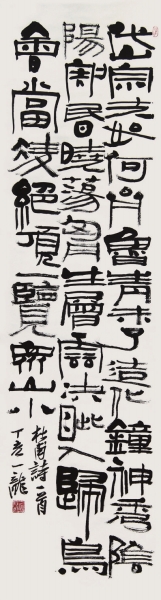 岱宗夫如何齊魯青未了造化鐘神秀陰
陽割昏曉蕩胸生層雲決眥入歸鳥
會當凌絕頂一覽眾山小
杜甫詩一首
丁亥一龍